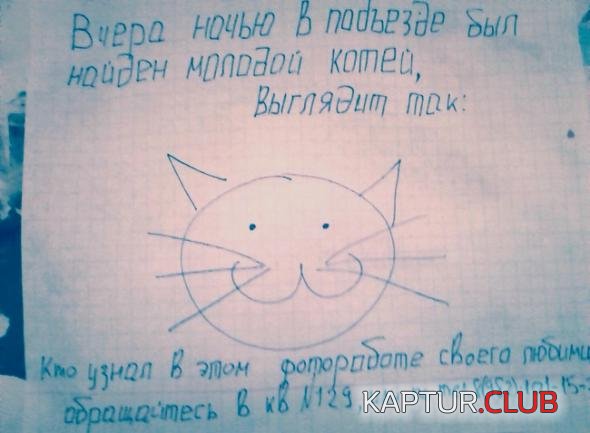 Вчера ночью в подъезде был
найден молодой котей,
Выглядит так:
Кто узнал в этом фотороботе своего любимц
обращайтесь в кв N129,
KAPTUR.CLUB